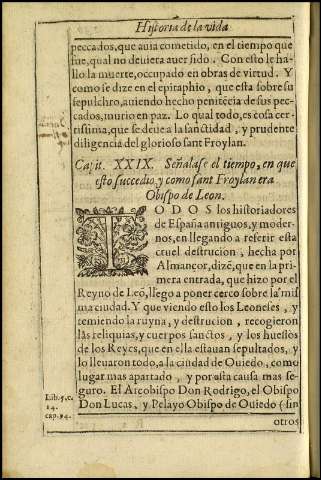 Historia de la vida
peccados, que auia cometido, en el tiempo que
fue, qual no deuiera auer sido. Con esto le ha-
llo la muerte, occupado en obras de virtud. Y
como se dize en el epitaphio, que esta sobre su
sepulchro, auiendo hecho penitẽcia de sus pec-
cados, murio en paz. Lo qual todo, es cosa cer-
tissima, que se deue a la sanctidad, y prudente
diligencia del glorioso sant Froylan.
Capit. XXIX. Señalase el tiempo, en que
esto succedio, y como sant Froylan era
Obispo de Leon.
TODOS los historiadores
de España antiguos, y moder-
nos, en llegando a referir esta
cruel destrucion, hecha por
Almançor, dizẽ, que en la pri-
mera entrada, que hizo por el
Reyno de Leõ, llego a poner cerco sobre la mis
ma ciudad. Y que viendo esto los Leoneses, y
temiendo la ruyna, y destrucion, recogieron
las reliquias, y cuerpos sanctos, y los huessos
de los Reyes, que en ella estauan sepultados, y
lo lleuaron todo, a la ciudad de Ouiedo, como
lugar mas apartado, y por esta causa mas se-
guro. El Arcobispo Don Rodrigo, el Obispo
Don Lucas, y Pelayo Obispo de Ouiedo (sin
otros
Lib. 5. c.
14.
cap. 94.